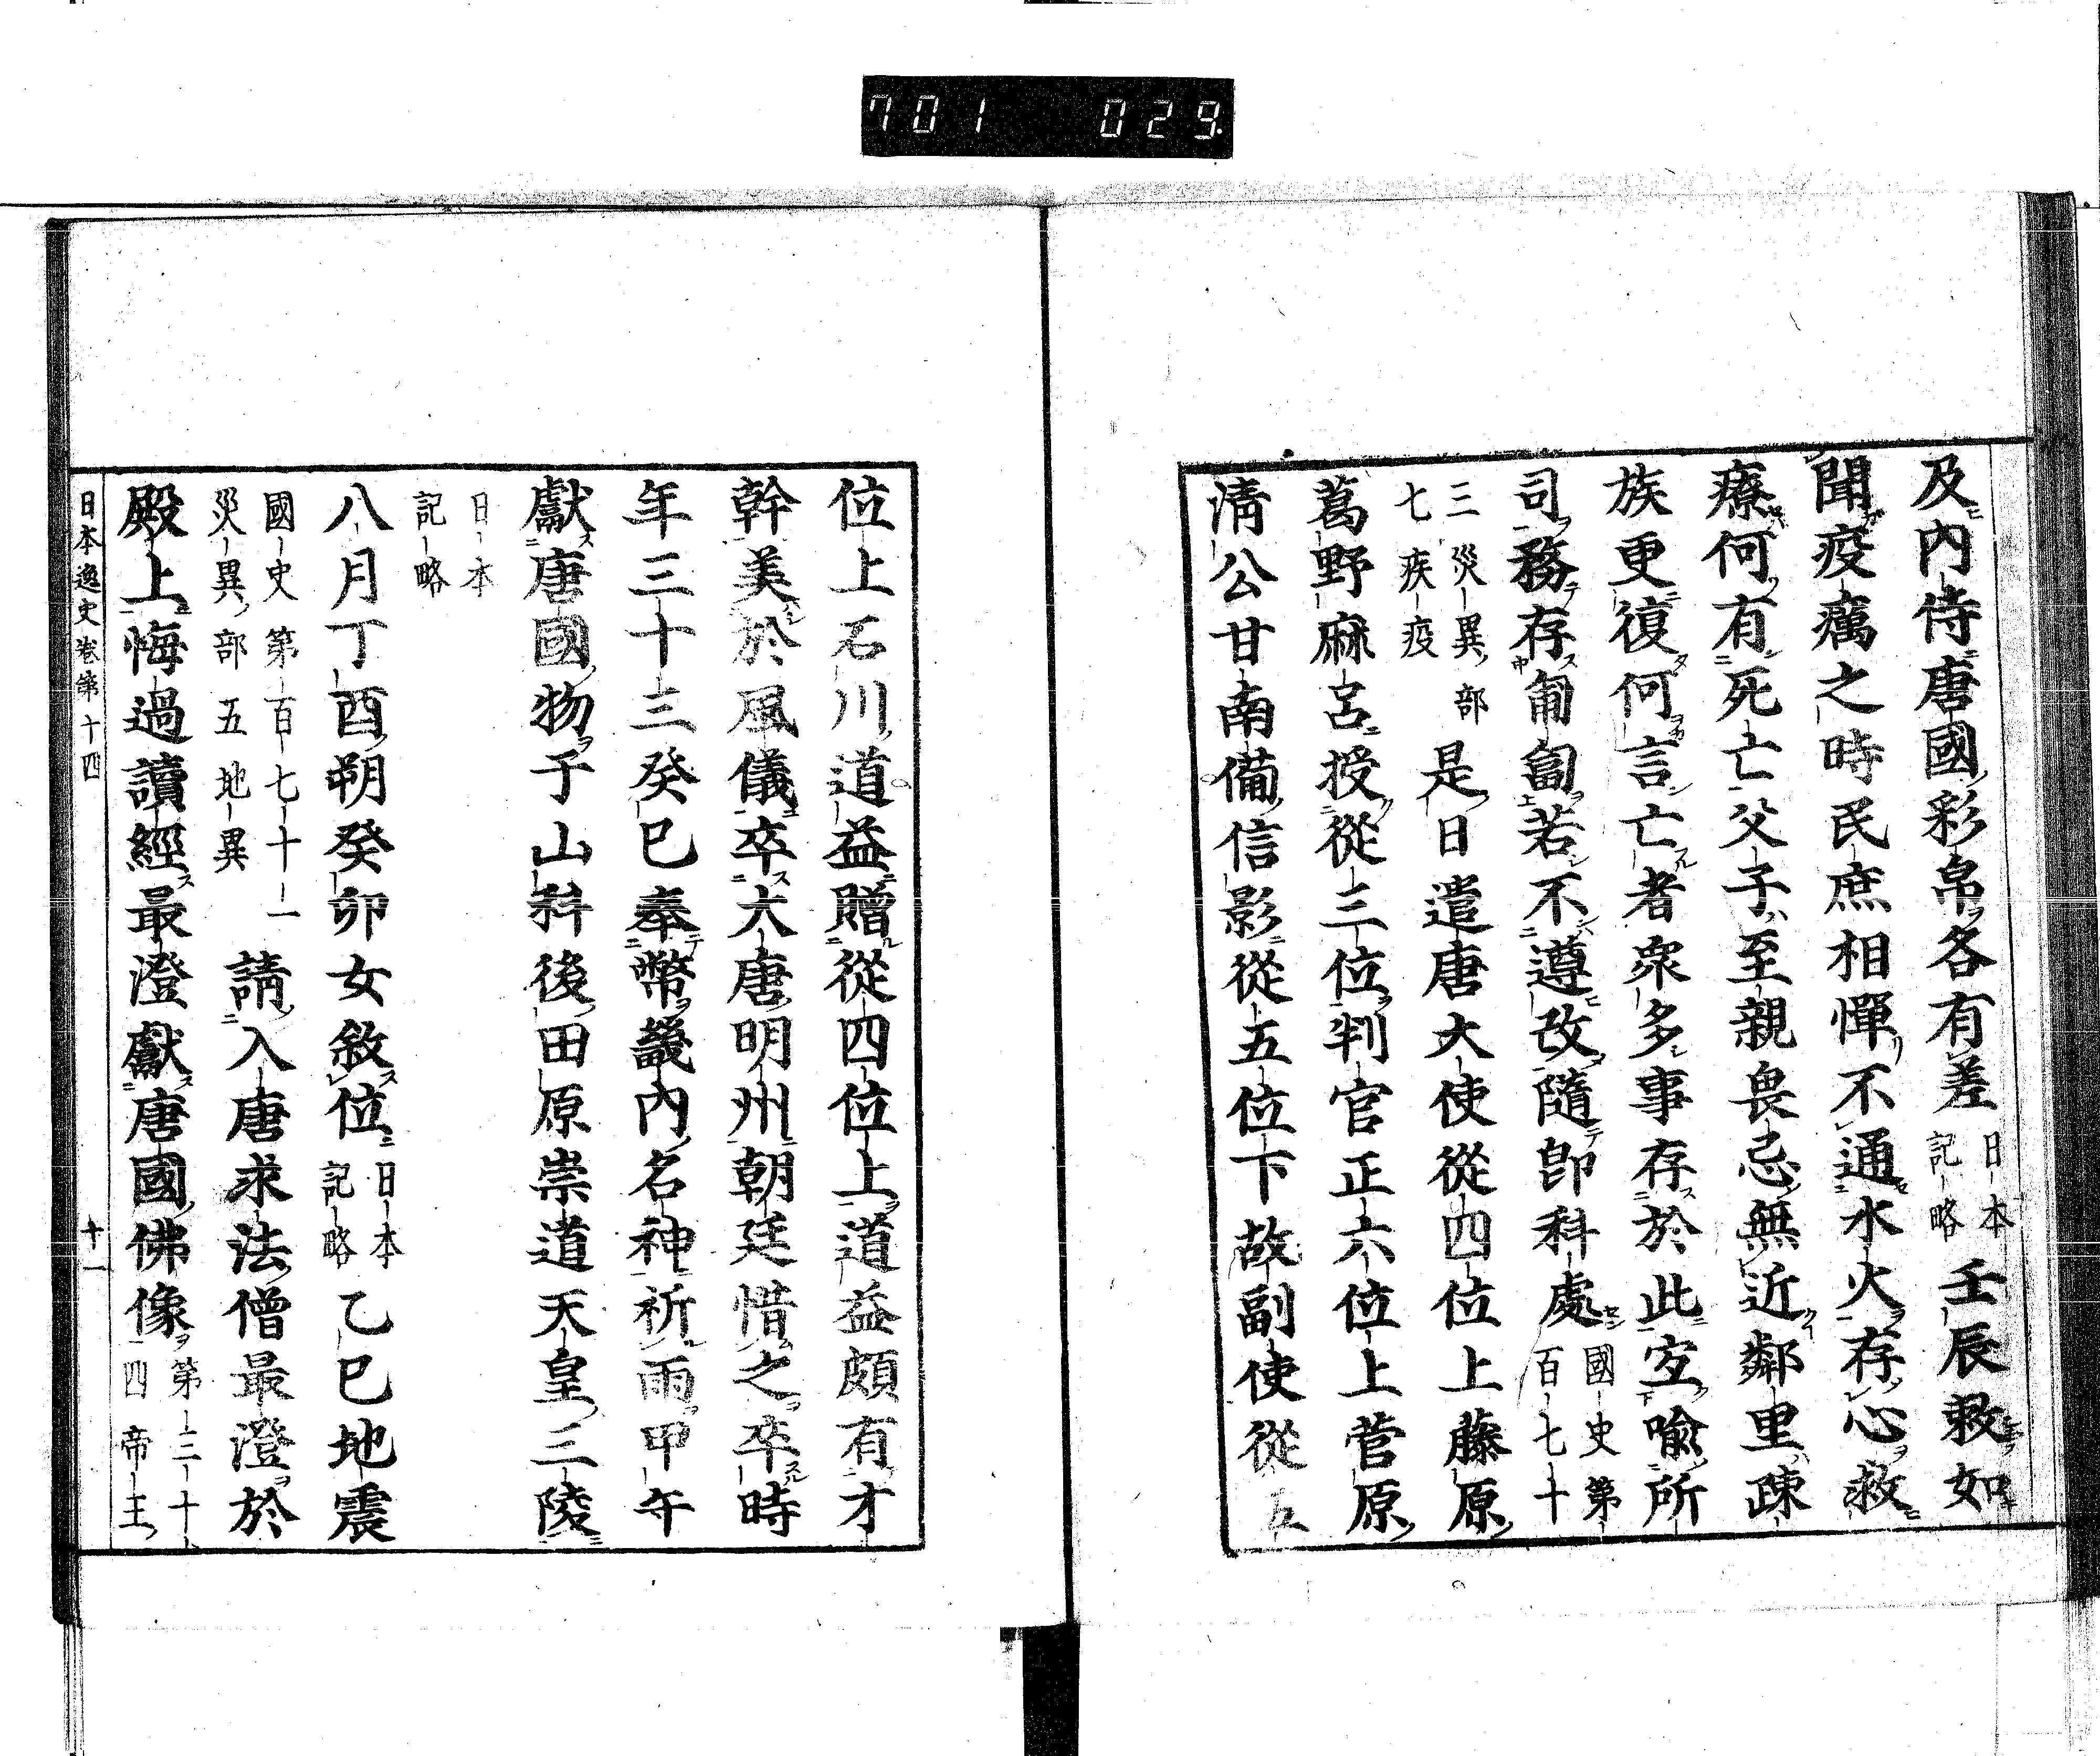 701 029
及内侍唐國彩帛各有差日本記略壬辰敕如
聞疫癘之時民庶相憚不通水火存心救
療何有死亡父子至親畏忌無近鄰里疎
族更復何言亡者衆多事存於此宜喩所
司務存匍匐若不遵改隨即科處國史第百七十
三災異部七疾疫是日遣唐大使從四位上藤原
葛野麻呂授從三位判官正六位上菅原
清公甘南備信影從五位下故副使從五
位上石川道益贈從四位上道益頗有才
幹美於風儀卒大唐明州朝廷惜之卒時
年三十三癸巳奉幣畿内名神祈雨甲午
獻唐國物于山科後田原崇道天皇三陵
日本記略
八月丁酉朔癸卯女敘位日本記略乙巳地震
國史第百七十一災異部五地異請入唐求法僧最澄於
殿上悔過讀經最澄獻唐國佛像第三十四帝王
日本逸史卷第十四 十一